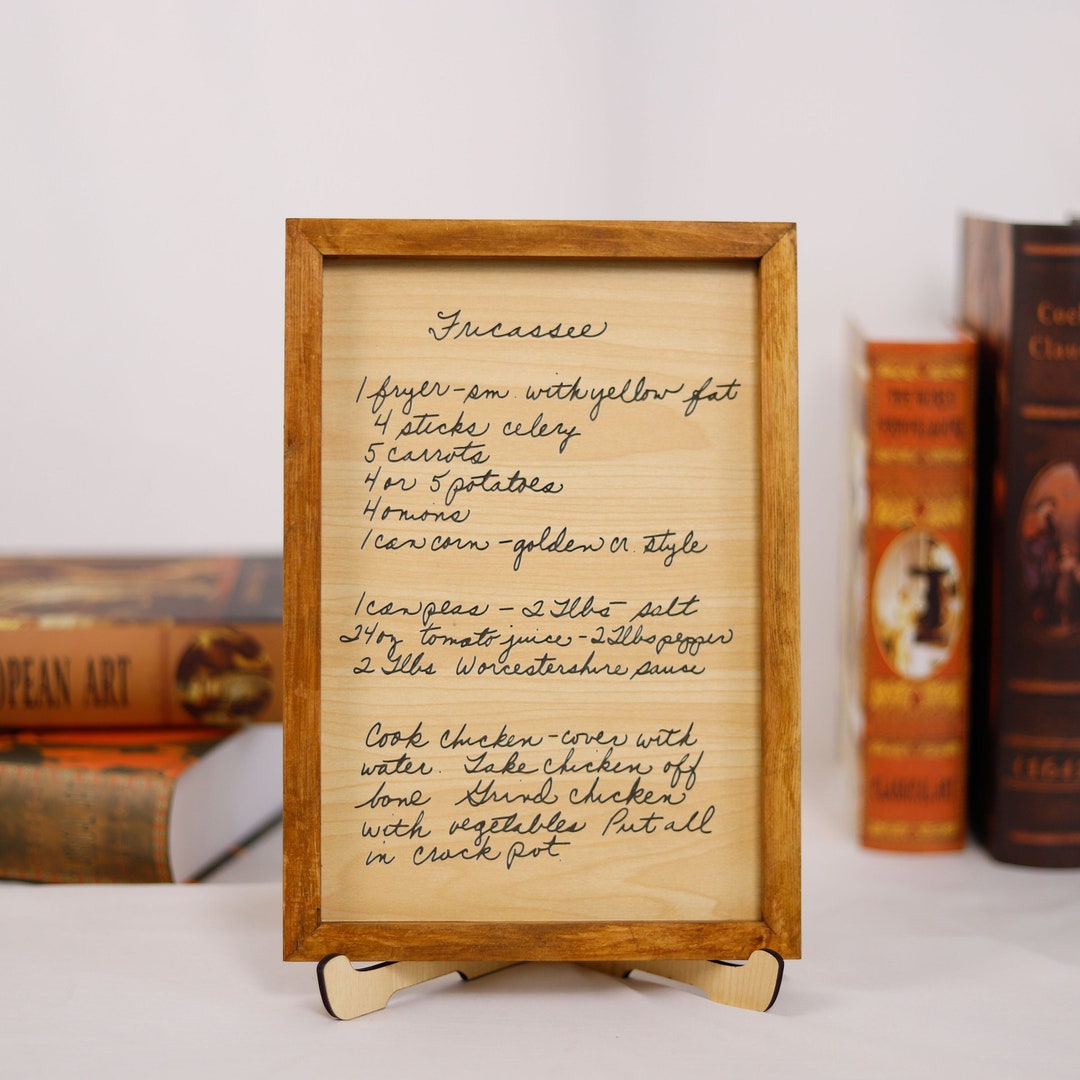 Fricassee
1 fryer - sm. with yellow fat
4 sticks celery
5 carrots
4 or 5 potatoes
4 onions
1 can corn - golden cr. style
1 can peas - 2 Tlbs salt
24 oz tomato juice - 2 Tlbs pepper
2 Tlbs Worcestershire sauce
Cook chicken - cover with
water. Take chicken off
bone Grind chicken
with vegetables Put all
in crock pot.
OPEAN ART
CLASSICAL ART